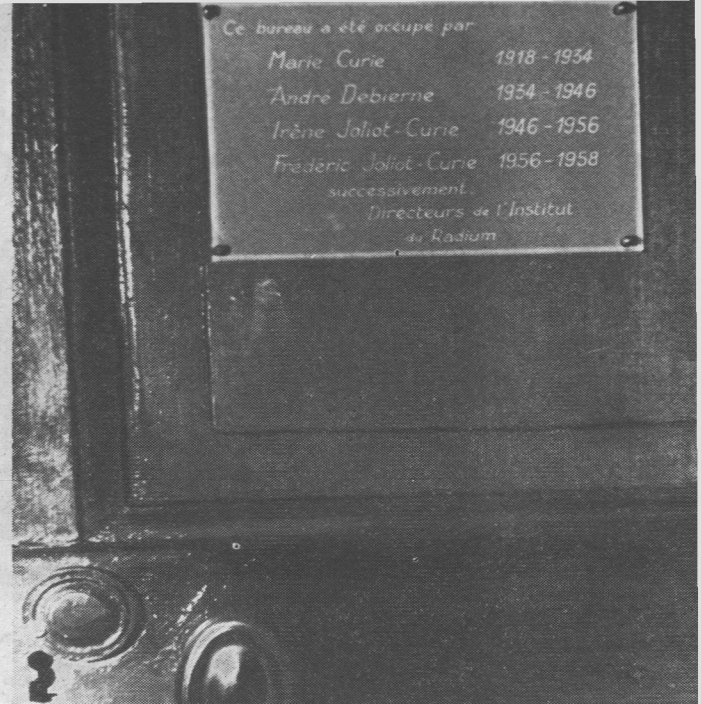 Ce bureau a été occupé par
Marie Curie 1918-1934
André Debierne 1934-1946
Irène Joliot-Curie 1946-1956
Frédéric Joliot-Curie 1956-1958
successivement
Directeurs de l'Institut
du Radium